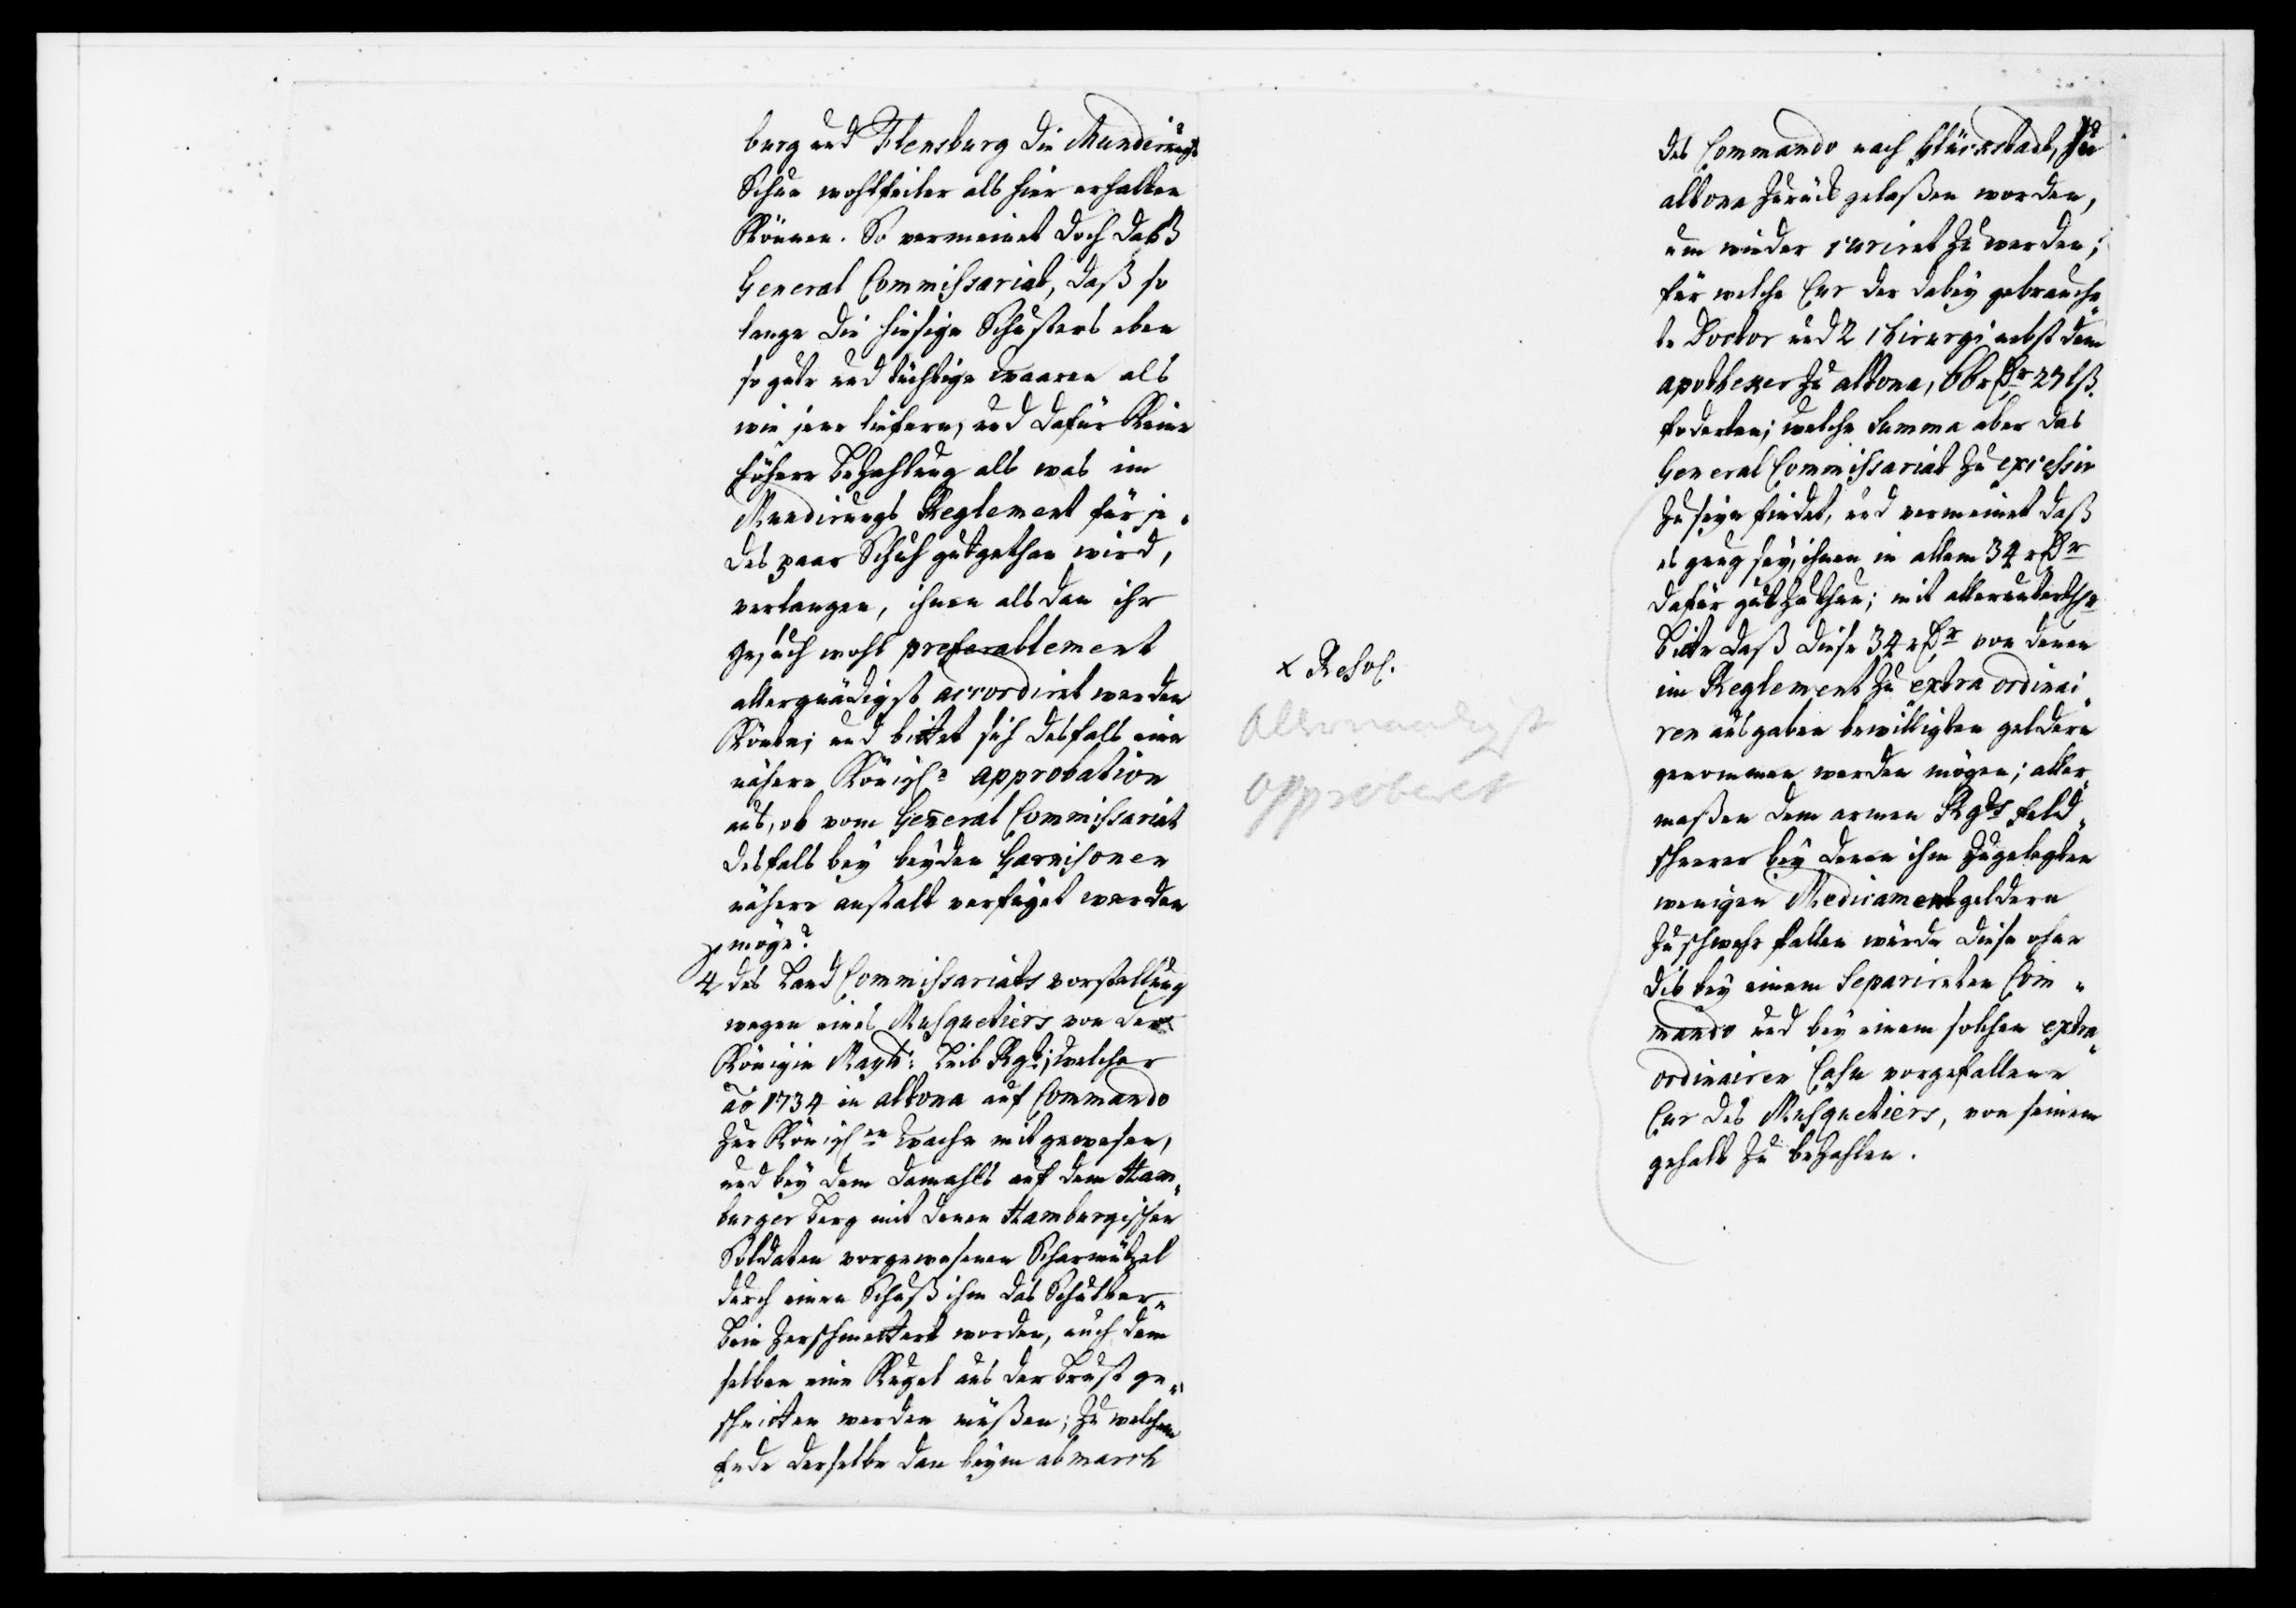 burg und Flensburg die Mundirungs
Schue wohlfeiler als hier erhalten
Können. So vermeinet doch daß
General Commissariat, daß so
lange die hiesige Schusters eben
so gute und tüchtige waaren als
wie jene liefern, und dafür Keine
höhere bezahlung als was im
Mundirungs Reglement für je„
des paar Schuh gutgethan wird,
verlangen, ihnen als dan ihr
gesuch wohl preferablement
allergnädigst accordiret werden
Könte; und bittet sich desfals eine
nähere Königl. approbation
aus, ob vom General Commissariat
desfals bey beyden Garnisonen
nähere anstalt verfüget werden
möge?
4 des Land Commissariats vorstellung
wegen eines Musquetiers von der
Königin Mayt: Leib Rgt; welcher
ao 1734 in altona auf Commando
zur Königl.en wache mit gewesen,
und bey dem damahls auf dem Ham„
burger berg mit denen Hamburgischen
Soldaten vorgewesenen Scharmützel
durch einen Schuß ihm das Schulter„
bein zerschmettert worden, auch dem
selben eine Kugel aus der brust ge„
schnitten werden müßen; zu welchem
Ende derselbe dan beym abmarch
x Resol.
Allernaadigst
approberet
des Commando nach Glückstadt, zu
altona zurück gelaßen worden,
um wieder curiret zu werden;
für welche Cur der dabey gebrauch„
te Doctor und 2 Chirurgi nebst dem
apotheker zu altona, 66 rdr 23 lß.
foderten; welche Summa aber das
General Commissariat zu excessiv
zu seyn findet, und vermeinet daß
es gnug sey, ihnen in allem 34 rdr
dafür gut zu thun; mit alleruntertgr
bitte daß diese 34 rdr von denen
im Reglement zu extra ordinai„
ren ausgaben bewilligten geldern
genommen werden mögen; aller„
maßen dem armen Rgts feld„
scheerer bey denen ihm zugelegten
wenigen Medicamentgeldern
zu schwehr fallen würde diese ohne
dis bey einem Separireten Com„
mando und bey einem solchen extra„
ordinairen Casu vorgefallene
Cur des Musquetiers, von seinem
gehalt zu bezahlen.